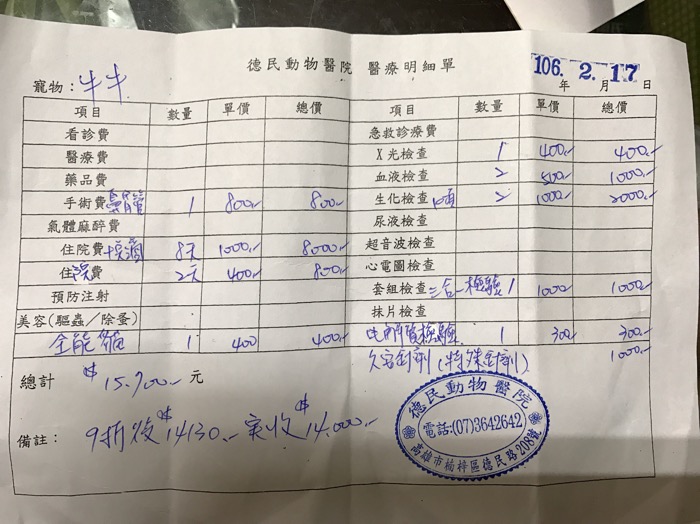 德民動物醫院 醫療明細單
106. 2. 17
年 月 日
寵物：牛牛
項目 數量 單價 總價 項目 數量 單價 總價
看診費 急救診療費
醫療費 X光檢查 1 400.- 400.-
藥品費 血液檢查 2 500.- 1000.-
手術費 1 800.- 800.- 生化檢查 2 1000.- 2000.-
氣體麻醉費 尿液檢查
住院費+點滴 8天 1000.- 8000.- 超音波檢查
住院費 2天 400.- 800.- 心電圖檢查
預防注射 套組檢查 三合一檢驗 1 1000.- 1000.-
美容(驅蟲／除蚤) 抹片檢查
全能貓 1 400 400.- 電解質檢驗 1 300.- 300.-
針劑(特殊針劑) 1000.-
總計 $15,700.- 元
備註： 9折後$14130.- 實收$14,000.-
德民動物醫院
電話:(07)3642642
高雄市楠梓區德民路208號